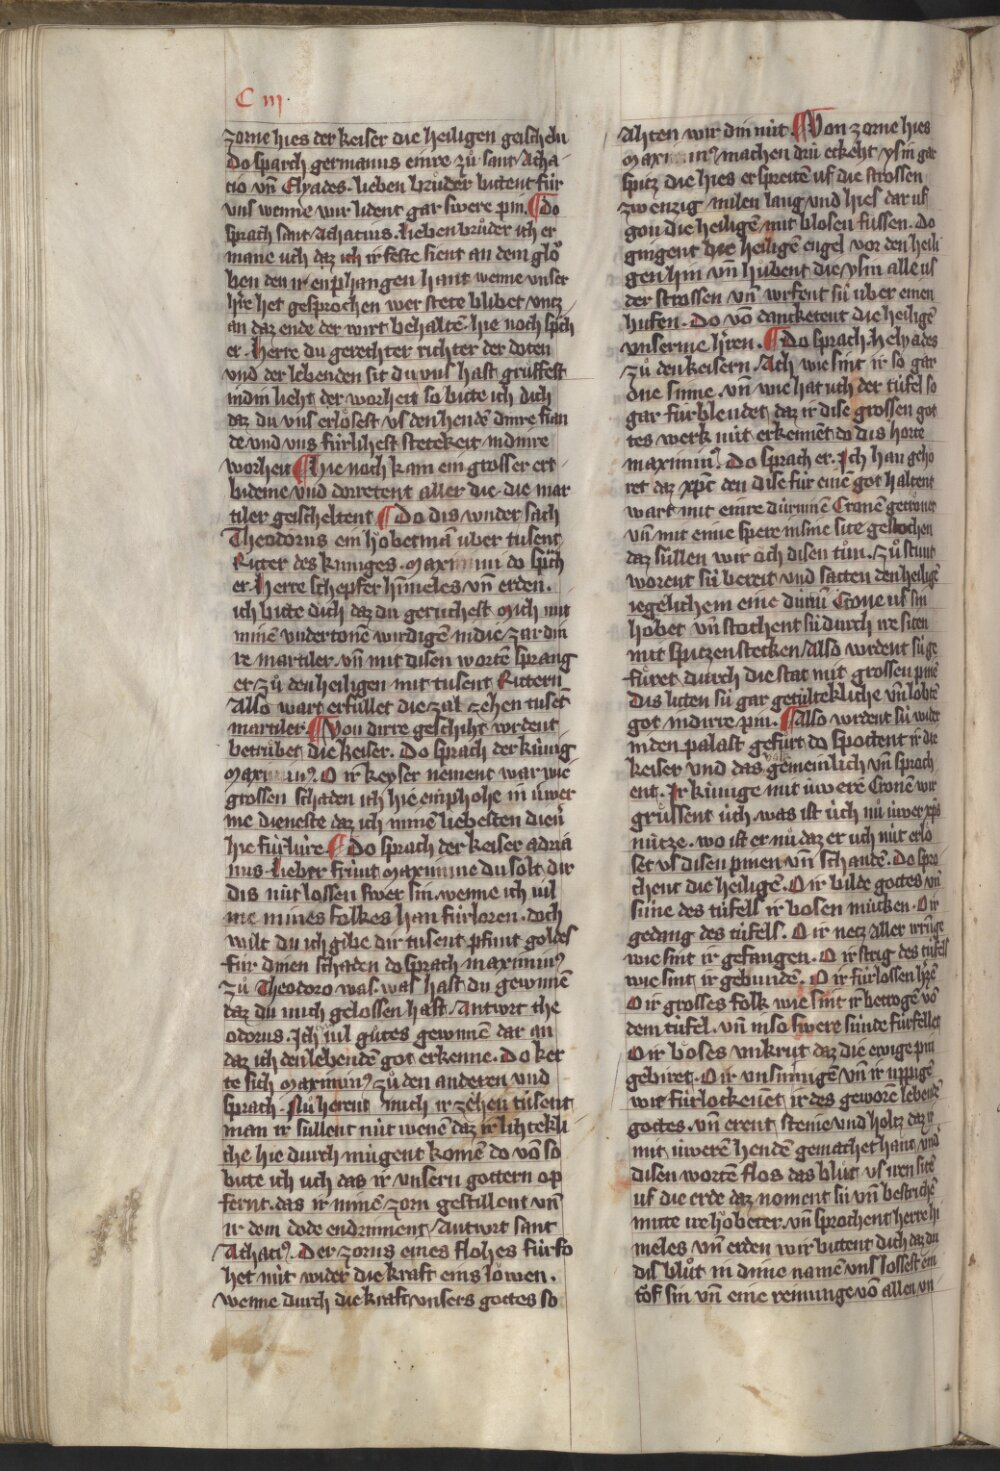 C iij
zorne hies der keiser die heiligen geischeln
Do sprach germanus einre zů sant Acha
tio vñ Elyades. lieben brůder bittent für
vns wenne wir lident gar swere pin. ¶ Do
sprach sant Achatius. lieben brůder ich er
mane uch daz ich ir feste sient an dem glǒ
ben den ir enphangen hant wenne vnser
h're het gesprochen wer stete blibet vntz
an daz ende der wirt behaltē. hie noch sp'ch
er. Herre du gerechter richter der doten
vnd der lebenden sit du vns hast grüffest
in din lieht der worheit so bitte ich dich
daz du vns erlǒsest vs den hendē dinre fian
de vnd vns fürlihest stetekeit in dinre
worheit ¶ hie noch kam ein grosser ert
bideme vnd dorretent aller die. die mar
tiler geischeltent ¶ Do dis wnder sach
Theodorus ein hobetmā über tusent
Ritter des küniges. Maximini do sp'ch
er. Herre schepfer h'meles vñ erden.
ich bitte dich daz du geruchest mich mit
minē vndertonē wirdigē in die zar din
re martiler. vñ mit disen wortē sprang
er zů den heiligen mit tusent Rittern
Also wart erfüllet die zal zehen tusēt
martiler ¶ Von dirre geschiht wrdent
betrübet die keiser. Do sprach der künig
Maximinꝰ. O ir keyser nement war wie
grossen schaden ich hie emphohe in ůwer
me dieneste daz ich mine liebesten diem̄
hie fürlüre. ¶ Do sprach der keiser adria
nus. lieber frünt maximine du solt dir
dis nüt lossen swer sin. wenne ich vil
me mines folkes han fürloren. doch
wilt du ich gibe dir tusent pfunt goldes
für dinen schaden do sprach maximinꝰ
zů Theodoro was. was hast du gewinē
daz du mich gelossen hast. Antwrt the
odorus. Ich vil gůtes gewinnē dar an
daz ich den lebendē got erkenne. Do ker
te sich maximinꝰ zů den anderen vnd
sprach. Nů hörent mich ir zehen tusent
man ir süllent nüt wenē daz ir lihtekli
che hie durch mügent komē do võ so
bitte ich uch das ir vnsern gottern op
fernt. das ir minē zorn gestillent vñ
ir dem dode endrinnent. Antwrt sant
Achatiꝰ. Der zorns eines flohes fürfo
het nüt wider die kraft eins lǒwen.
wenne durch die kraft vnsers gottes so
Ahten wir din nüt. ¶ Von zorne hies
maximinꝰ machen drü eckeht ysin gar
spitz die hies er spreitē uf die strossen
zwenzig milen lang vnd hies dar uf
gon die heiligē mit blosen füssen. Do
gingent die heiligē engel vor den heili
gen hin vñ hůbent die ysin alle us
der strossen vñ wrfent sü über einen
hufen. Do võ dancketent die heiligē
vnserme h'ren. ¶ Do sprach. helyades
zů den keisern. Ach wie sint ir so gar
one sinne. vñ wie hat uch der tüfel so
gar fürblendet daz ir dise grossen got
tes werk nüt erkennēt do dis horte
maximinꝰ. Do sprach er. Ich han gehö
ret daz xp̄c den dise für einē got haltent
wart mit einre dürninē Cronē gecrönet
vñ mit eime spere in sine site gestochen
daz süllen wir ǒch disen tůn. Zů stunt
worent sü bereit vnd satten den heiligē
iegelichem eine dürnī Crone uf sin
hǒbet vñ stochent sü durch ire siten
mit spitzen stecken. Also wrdent sü ge
fůret durch die stat mit grossen pinē
Dis litten sü gar getülteklich vñ lobtē
got in dirre pin. ¶ Also wrdent sü wider
in den palast gefürt do spottent ir die
keiser vnd das gemeinlich vñ sproch
ent. Ir künige mit ůwerē Cronē wir
grüssent üch. was ist üch nů ůwer xp̄s
nütze. wo ist er nů daz er uch nüt erlo
set vs disen pinen vñ schandē. Do spro
chent die heiligē. O ir bilde gottes vñ
süne des tüfels ir bosen mücken. O ir
gedang des tüfels. O ir netz aller vrrůge
wie sint ir gefangen. O ir strig des tüfels
wie sint ir gebundē. O ir fürlossen h'zē
O ir grosses folk wie sint ir betrogē võ
dem tüfel. vñ in so swere sünde fürfellet
O ir bǒses vnkrut daz die ewige pin
gebiret. O ir vnsinnigē vñ ir üppigē
wie fürlockenēt ir des geworē lebendē
gottes. vñ erent steine vnd holtz daz ir
mit ůwerē hendē gemachet hant vnd
disen wortē flos das blůt vs iren sitē
uf die erde daz noment sü vñ bestrichē
mitte ire hǒbeter. vñ sprochent herre hi
meles vñ erden wir bittent dich daz du
dis blůt in dime namē vns lossest ein
tǒf sin vñ eine reinunge võ allen vn